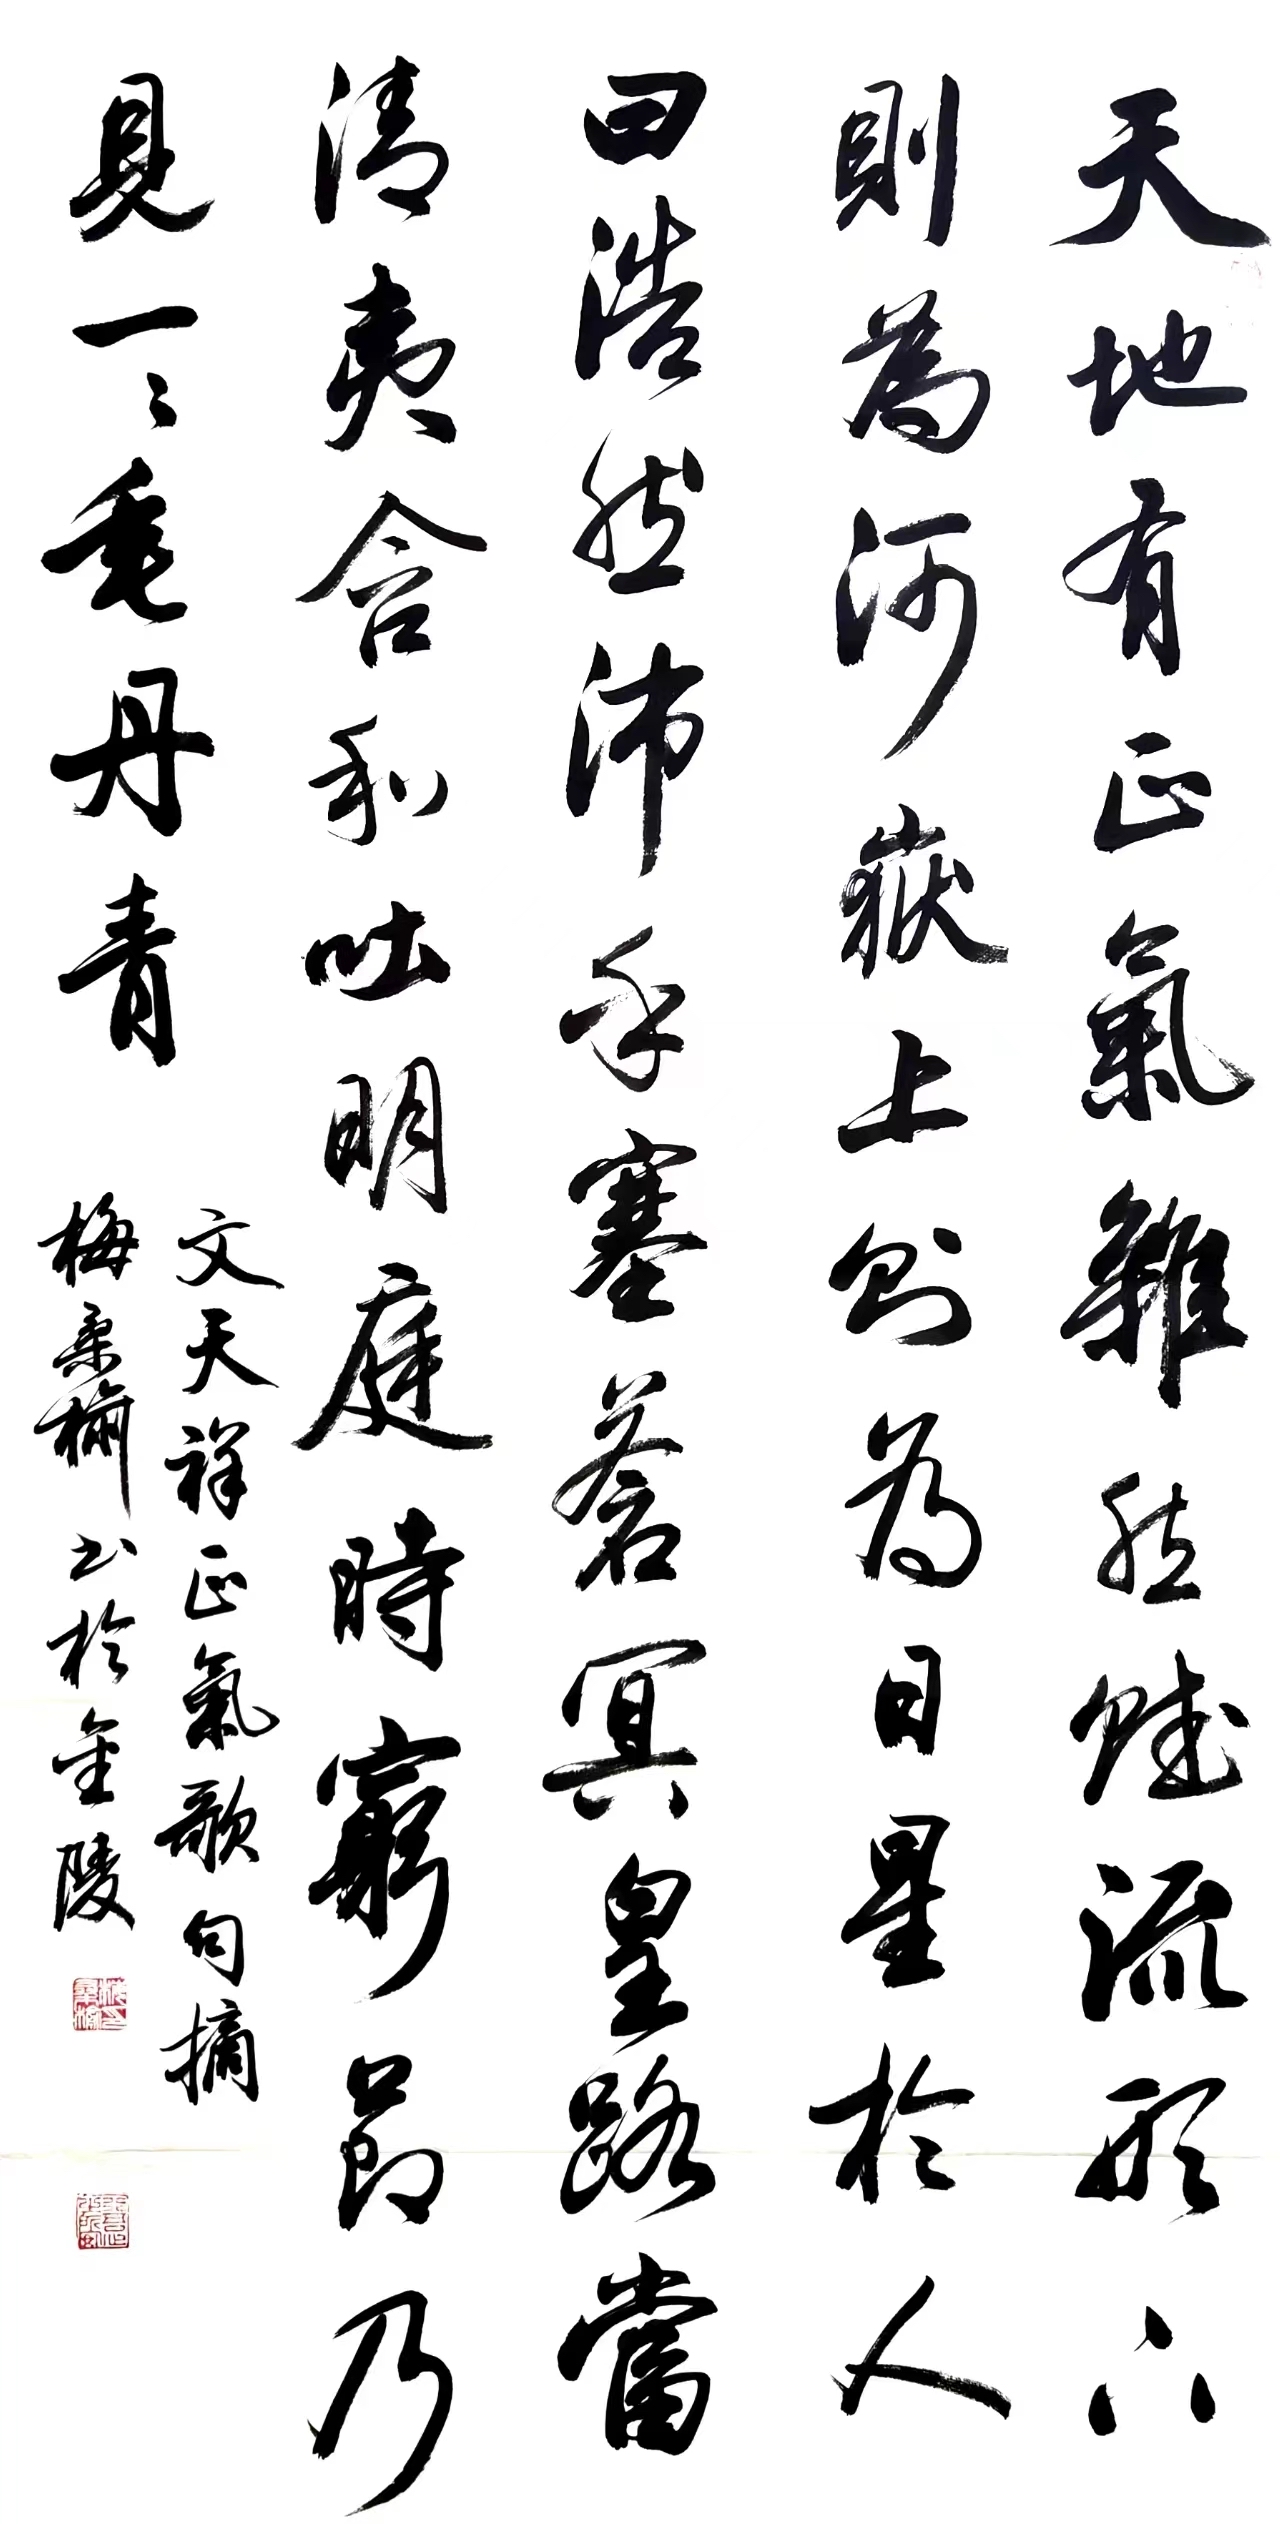 天地有正氣雜然賦流形下
則為河嶽上則為日星於人
曰浩然沛乎塞蒼冥皇路當
清夷含和吐明庭時窮節乃
見一〻垂丹青
文天祥正氣歌句摘
梅桑榆书於金陵